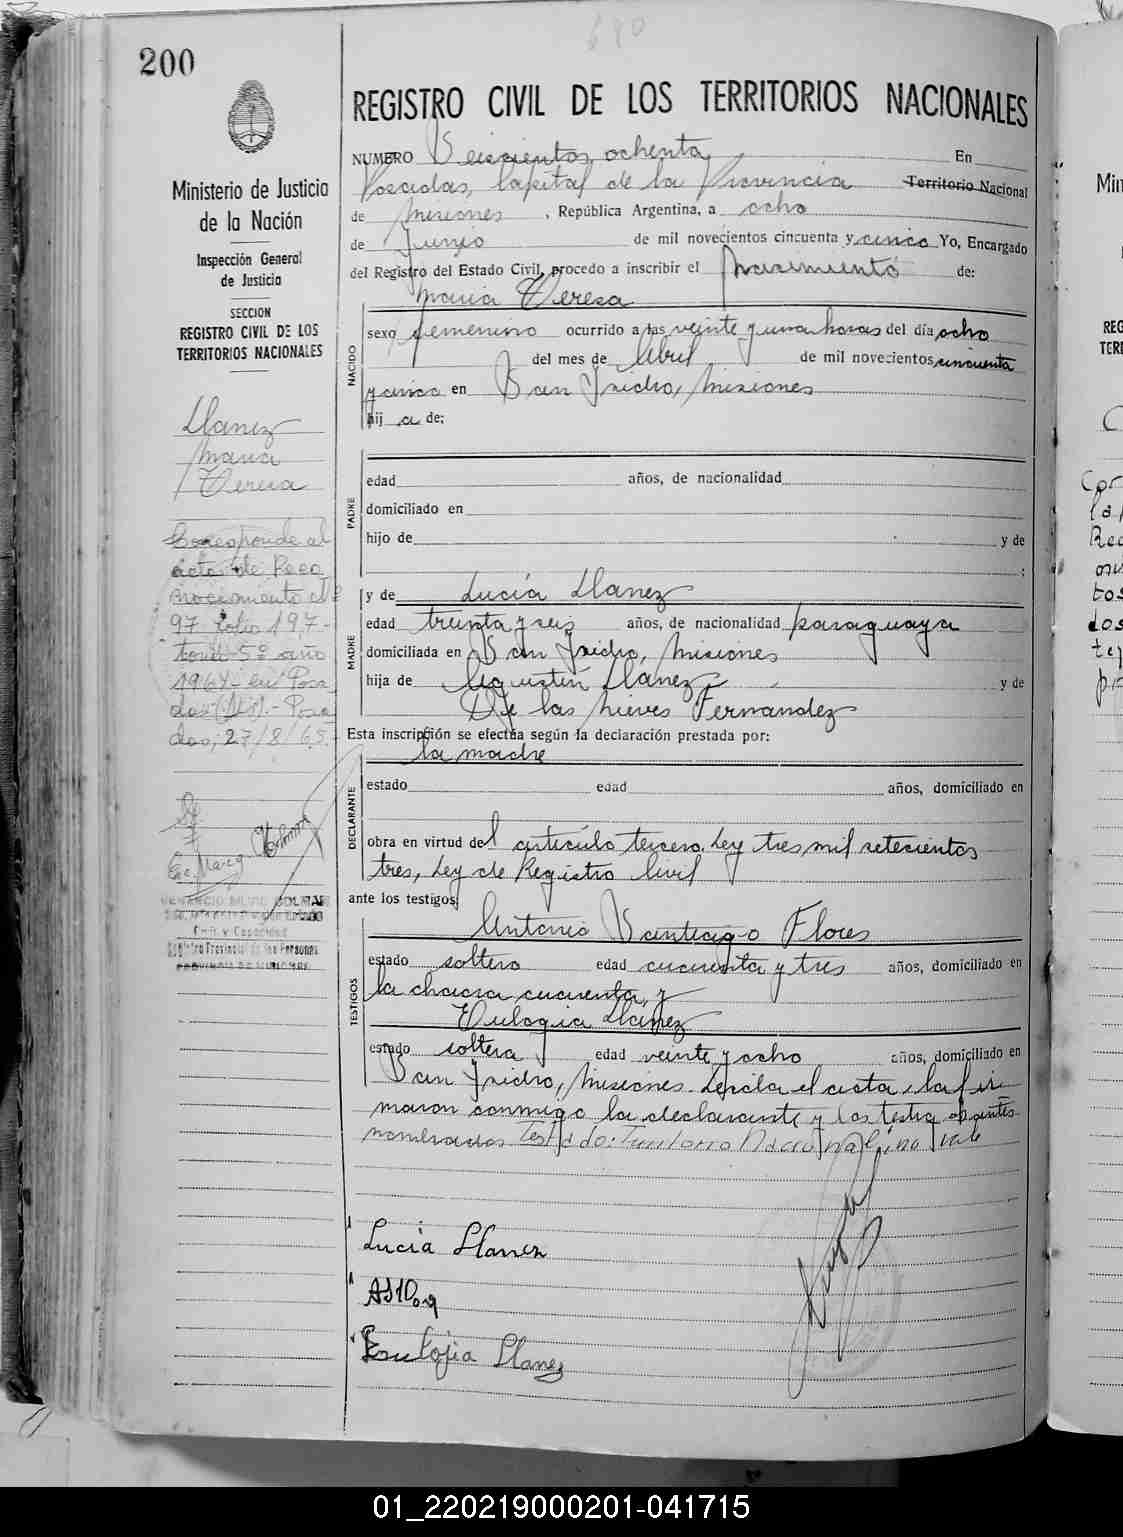 680
200
REGISTRO CIVIL DE LOS TERRITORIOS NACIONALES
NUMERO Seiscientos ochenta En
Posadas, Capital de la Provincia Territorio Nacional
de Misiones, República Argentina, a ocho
de Junio de mil novecientos cincuenta y cinco Yo, Encargado
del Registro del Estado Civil, procedo a inscribir el Nacimiento de:
Maria Teresa
NACIDO
sexo femenino ocurrido a las veinte y una horas del día ocho
del mes de Abril de mil novecientos cincuenta
y cinco en San Isidro, Misiones
hij a de:
PADRE
edad años, de nacionalidad
domiciliado en
hijo de y de
;
MADRE
y de Lucía Llanez
edad treinta y seis años, de nacionalidad paraguaya
domiciliada en San Isidro, Misiones
hija de Agustín Llanez y de
De las Nieves Fernandez
Esta inscripción se efectúa según la declaración prestada por:
la madre
DECLARANTE
estado edad años, domiciliado en
obra en virtud del artículo tercero, Ley tres mil setecientos
tres, Ley de Registro Civil
ante los testigos:
TESTIGOS
Antonio Santiago Flores
estado soltero edad cuarenta y tres años, domiciliado en
la chacra cuarenta, y
Eulogia Llanez
estado soltera edad veinte y ocho años, domiciliado en
San Isidro, Misiones. Leída el acta, la fir
maron conmigo la declarante y los testigos antes
nombrados Testado: Territorio Nacional: no vale
Lucia Llanez
Eulojia Llanez
Ministerio de Justicia
de la Nación
Inspección General
de Justicia
SECCION
REGISTRO CIVIL DE LOS
TERRITORIOS NACIONALES
Llanez
Maria
Teresa
Corresponde al
acta de Reco
nocimiento al
97 folio 197-
tomo 5º año
1964 en Posa
das (Ms).- Posa
das, 27/8/65.
Civil y Capacidad
Registro Provincial de las Personas
PROVINCIA DE MISIONES
Min
REG
TERR
01_220219000201-041715